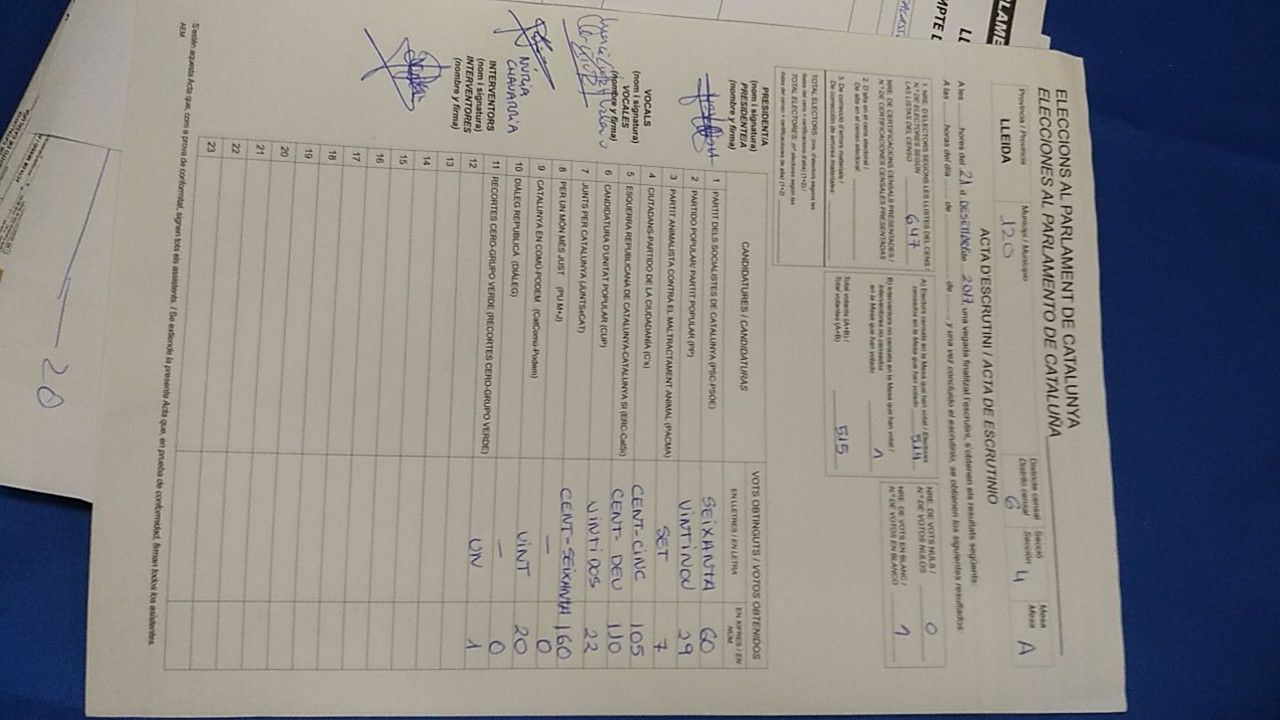 ELECCIONS AL PARLAMENT DE CATALUNYA
ELECCIONES AL PARLAMENTO DE CATALUÑA
Província / Provincia
LLEIDA
Municipi / Municipio
120
Districte censal
Distrito censal
6
Secció
Sección
4
Mesa
Mesa
A
ACTA D'ESCRUTINI / ACTA DE ESCRUTINIO
A les ........ hores del 21 d DESEMBRE 2017, una vegada finalitzat l'escrutini, s'obtenen els resultats següents:
A las ........ horas del día ........ de ........ de ........, y una vez concluido el escrutinio, se obtienen los siguientes resultados:
1. NRE. D'ELECTORS SEGONS LES LLISTES DEL CENS /
N.º DE ELECTORES SEGÚN
LAS LISTAS DEL CENSO
647
NRE. DE CERTIFICACIONS CENSALS PRESENTADES /
N.º DE CERTIFICACIONES CENSALES PRESENTADAS
2. D'alta en el cens electoral /
De alta en el censo electoral:
3. De correcció d'errors materials /
De corrección de errores materiales:
TOTAL ELECTORS (nre. d'electors segons les
llistes del cens + certificacions d'alta) (1+2) /
TOTAL ELECTORES (nº electores según las
listas del censo + certificaciones de alta) (1+2)
A) Electors censats en la Mesa que han votat / Electores
censados en la Mesa que han votado
514
B) Interventors no censats en la Mesa que han votat /
Interventores no censados
en la Mesa que han votado
1
Total votants (A+B) /
Total votantes (A+B)
515
NRE. DE VOTS NULS /
N.º DE VOTOS NULOS
0
NRE. DE VOTS EN BLANC /
N.º DE VOTOS EN BLANCO
1
CANDIDATURES / CANDIDATURAS
VOTS OBTINGUTS / VOTOS OBTENIDOS
EN LLETRES / EN LETRA
EN XIFRES / EN NÚM
1 PARTIT DELS SOCIALISTES DE CATALUNYA (PSC-PSOE) SEIXANTA 60
2 PARTIDO POPULAR/ PARTIT POPULAR (PP) VINTINOU 29
3 PARTIT ANIMALISTA CONTRA EL MALTRACTAMENT ANIMAL (PACMA) SET 7
4 CIUTADANS-PARTIDO DE LA CIUDADANÍA (C's) CENT-CINC 105
5 ESQUERRA REPUBLICANA DE CATALUNYA-CATALUNYA SÍ (ERC-CatSí) CENT-DEU 110
6 CANDIDATURA D'UNITAT POPULAR (CUP) VINTIDOS 22
7 JUNTS PER CATALUNYA (JUNTSxCAT) CENT-SEIXANTA 160
8 PER UN MÓN MÉS JUST (PU M+J) — 0
9 CATALUNYA EN COMÚ-PODEM (CatComú-Podem) VINT 20
10 DIÀLEG REPUBLICÀ (DIÀLEG) — 0
11 RECORTES CERO-GRUPO VERDE (RECORTES CERO-GRUPO VERDE) UN 1
12
13
14
15
16
17
18
19
20
21
22
23
PRESIDENT/A
(nom i signatura)
PRESIDENTE/A
(nombre y firma)
VOCALS
(nom i signatura)
VOCALES
(nombre y firma)
INTERVENTORS
(nom i signatura)
INTERVENTORES
(nombre y firma)
NÚRIA
CHAVARRIA
S'estén aquesta Acta que, com a prova de conformitat, signen tots els assistents. / Se extiende la presente Acta que, en prueba de conformidad, firman todos los asistentes.
AEM
20